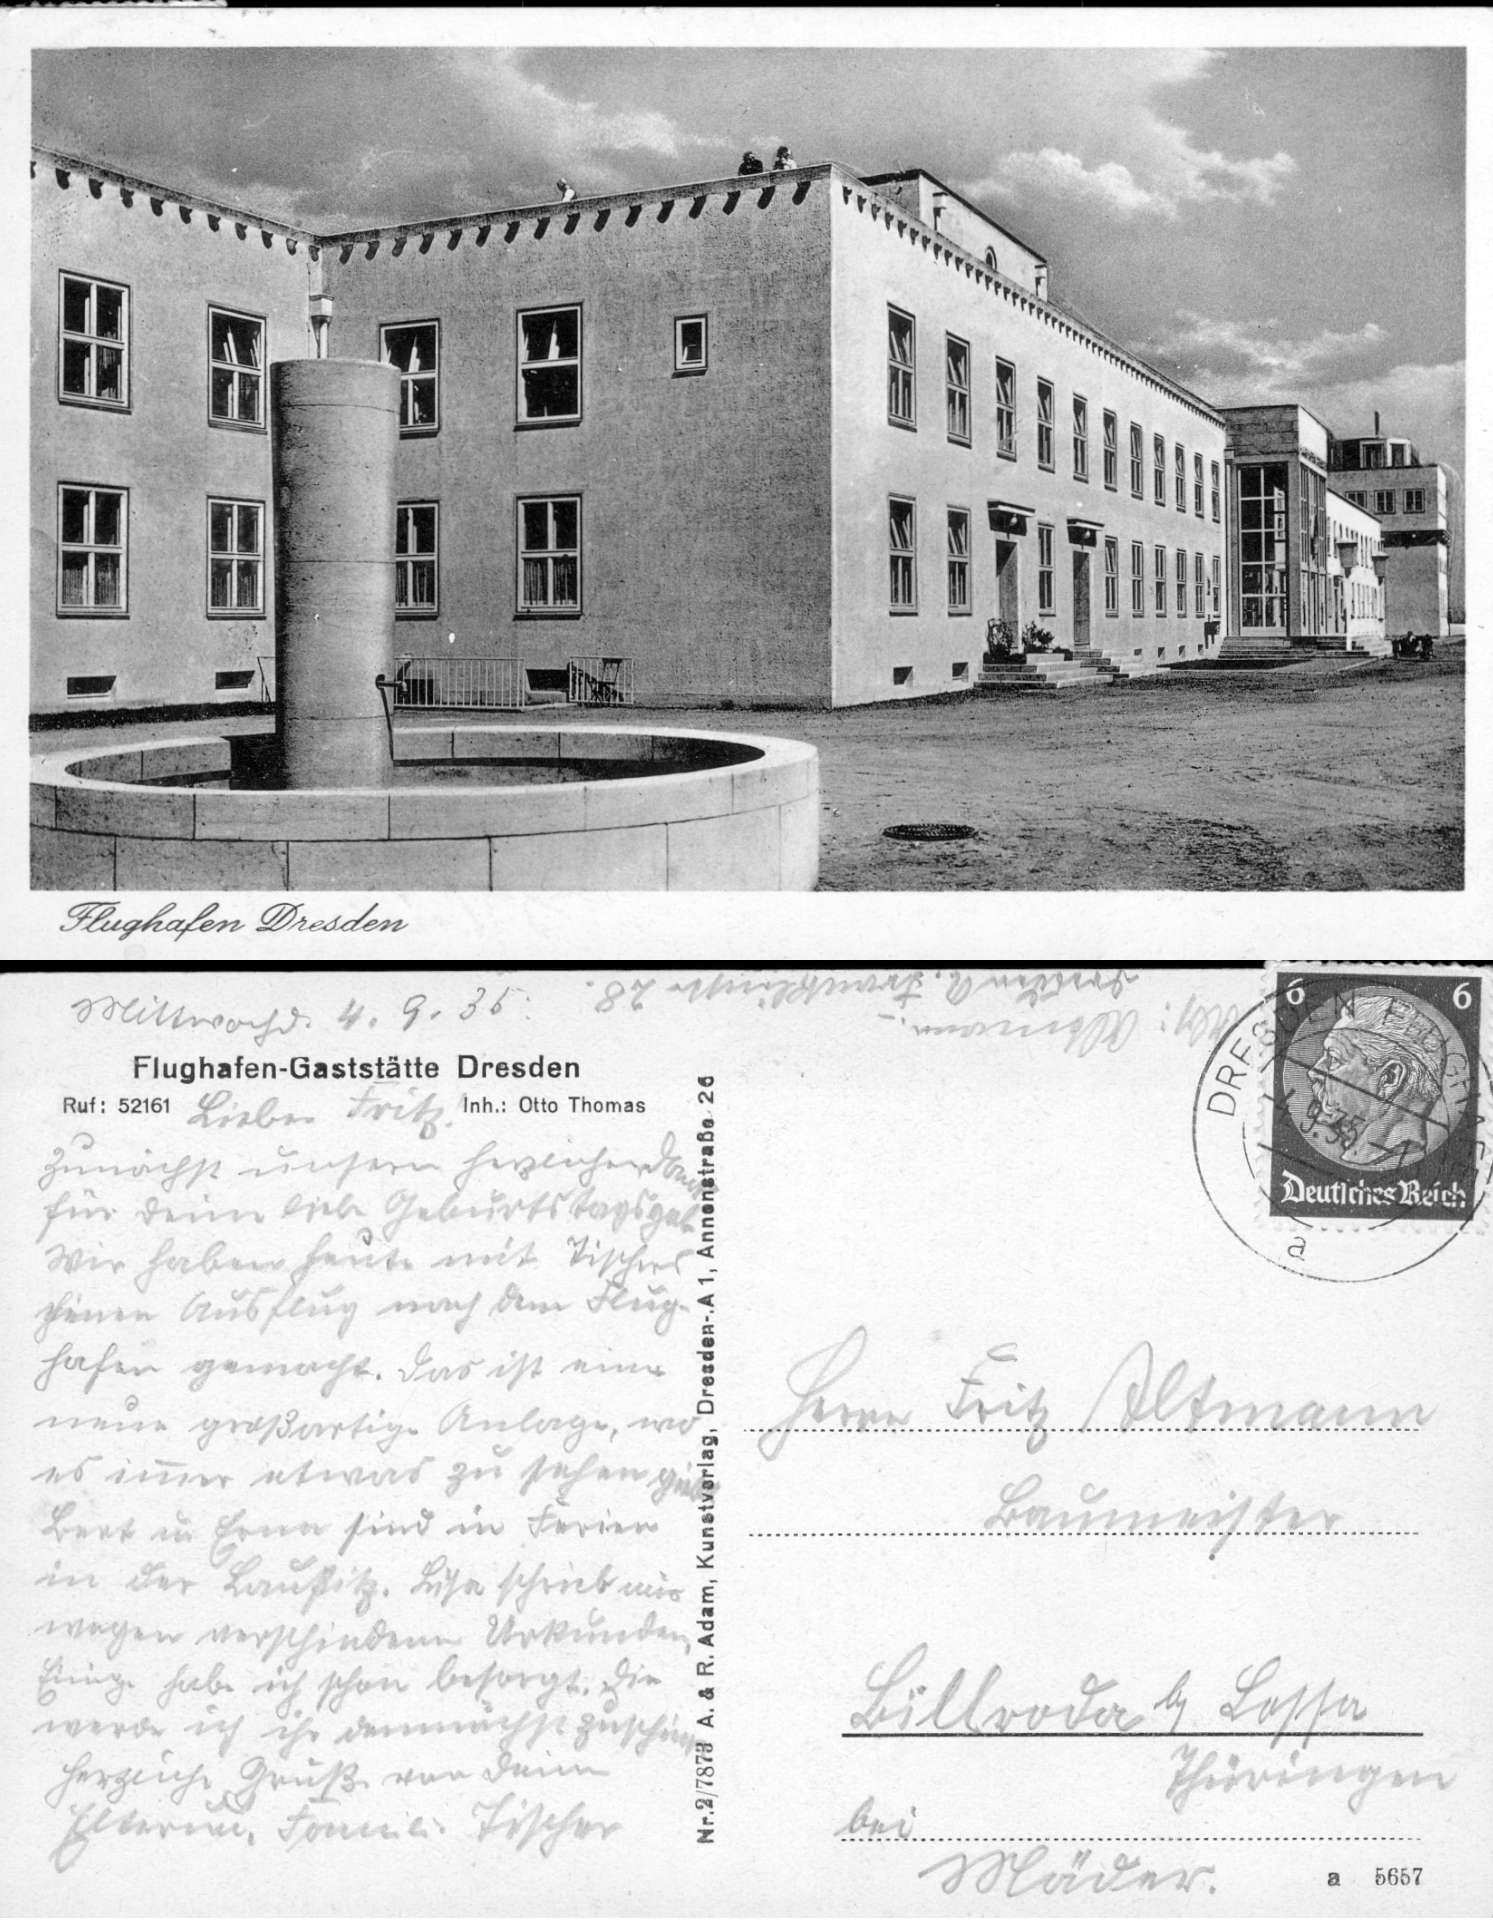 Flughafen Dresden
Mittwoch d. 4. 9. 35.
Abs: Altmann.
Dresden A. Franklinstr 28.
Flughafen-Gaststätte Dresden
Ruf: 52161
Inh.: Otto Thomas
Lieber Fritz!
Zunächst unsern herzlichen Dank
für deine liebe Geburtstagsgabe
Wir haben heute mit Tischers
einen Ausflug nach dem Flug-
hafen gemacht. Das ist eine
neue großartige Anlage, wo
es immer etwas zu sehen gibt
Bert u Erna sind in Ferien
in der Laußitz. Lisa schrieb mir
wegen verschiedenen Urkunden,
Einige habe ich schon besorgt. Die
werde ich ihr demnächst zuschicken
Herzliche Grüße von deinen
Eltern u. Familie Tischer
Nr. 2/7873 A. & R. Adam, Kunstverlag, Dresden-A 1, Annenstraße 26
6 6
Deutsches Reich
DRESDEN FLUGHAFEN
4.9.35
a
Herrn Fritz Altmann
Baumeister
Billroda b/ Lossa
Thüringen
bei
Mäder.
a 5657